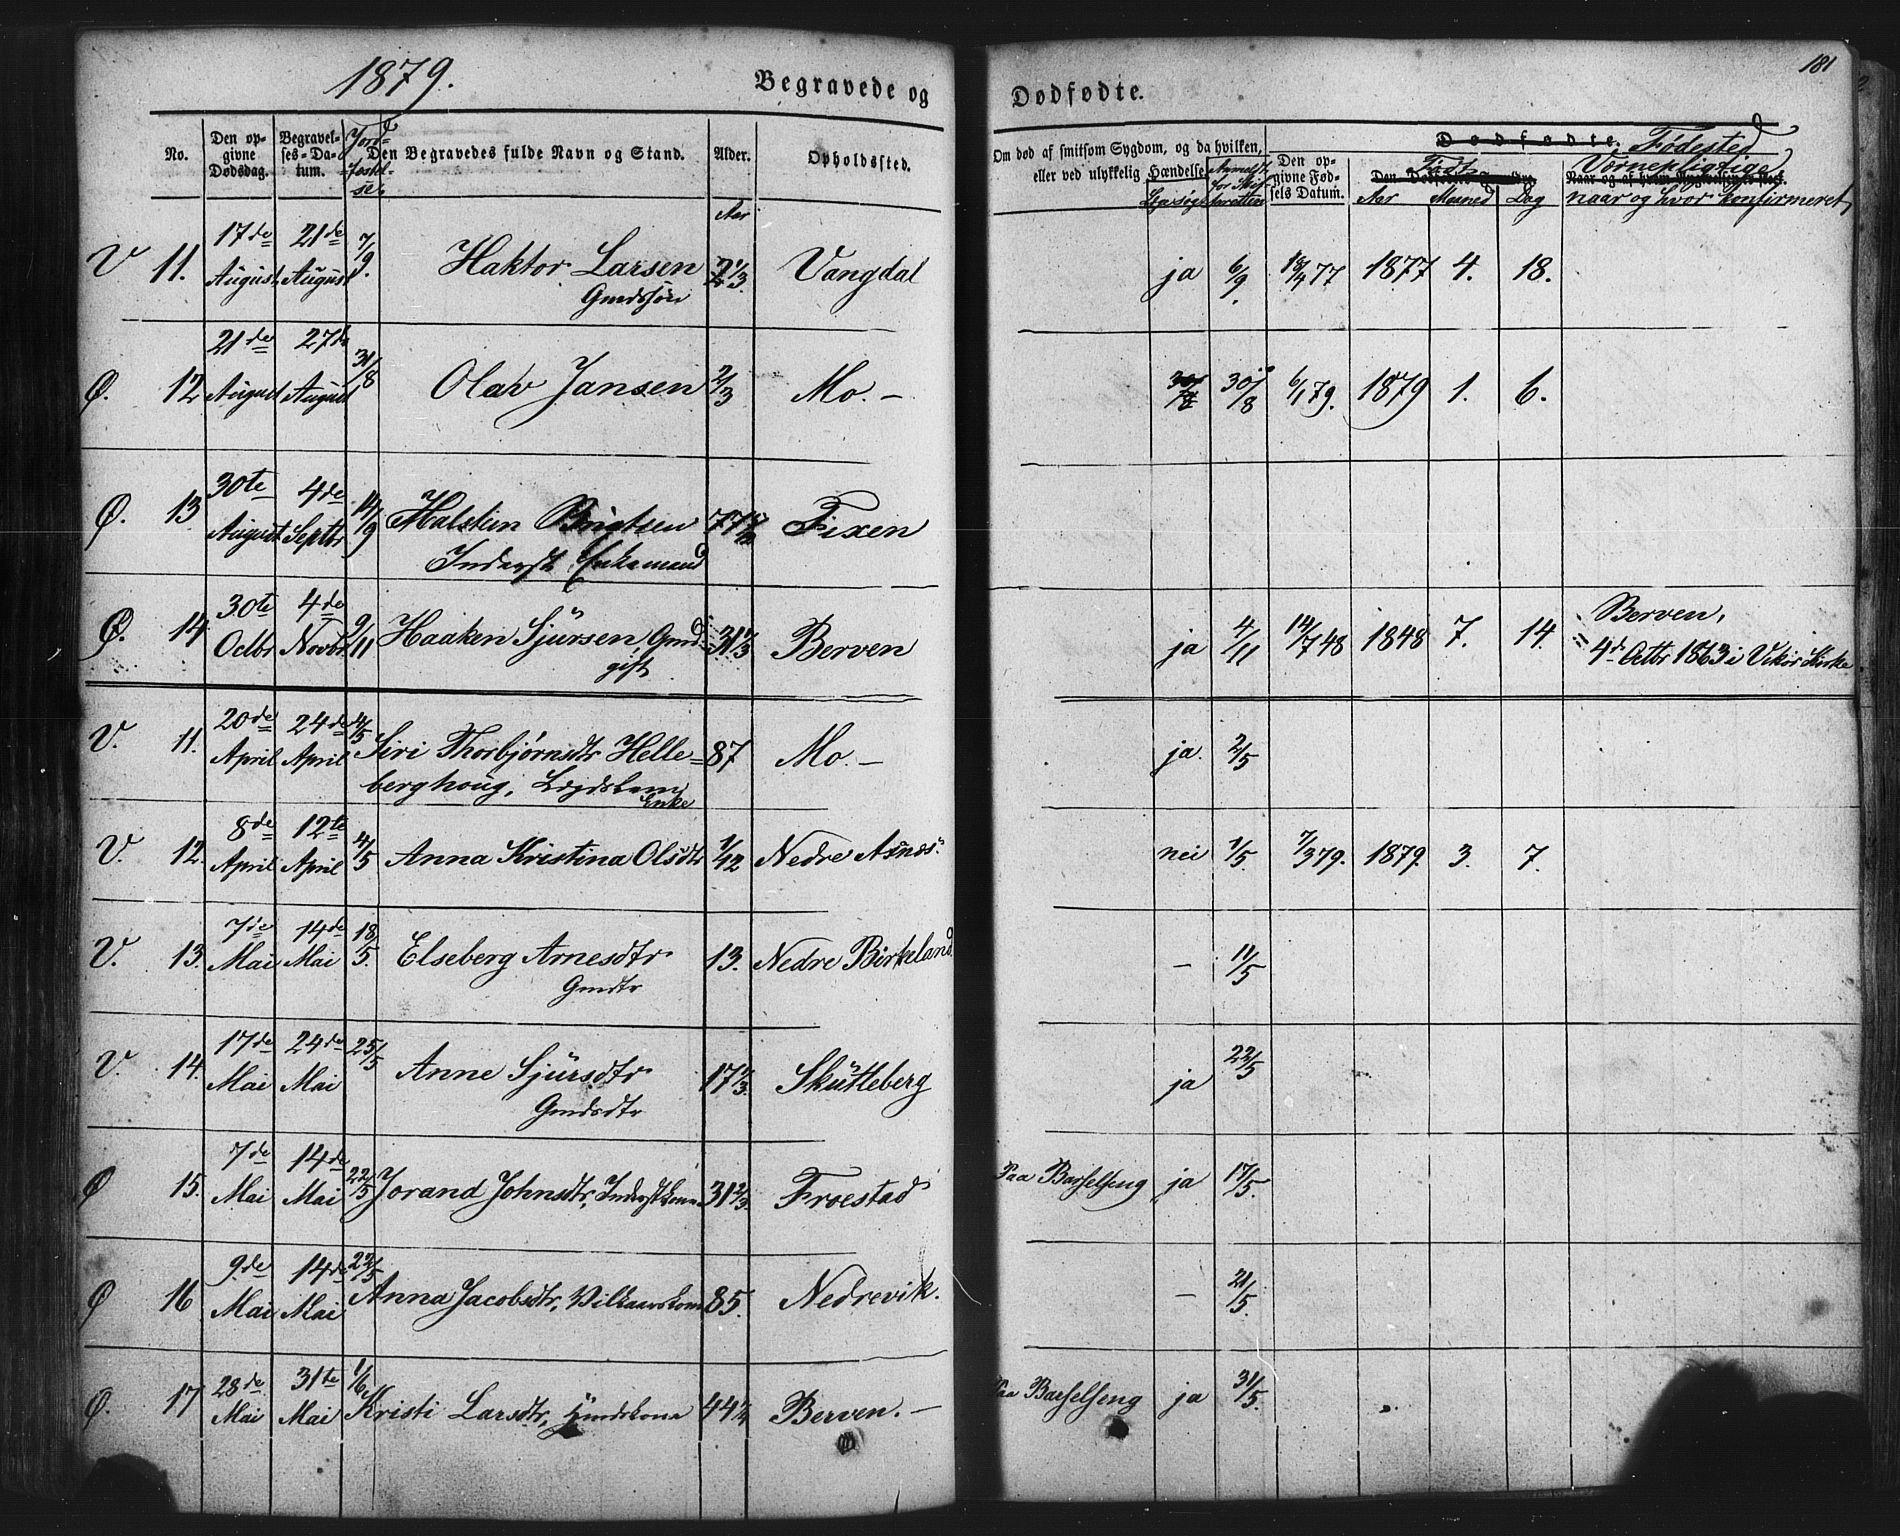 1879.
Begravede og
Dødfødte.
181
No.
Den opgivne Dødsdag.
Begravelses-Datum.
Jordfæstelse
Den Begravedes fulde Navn og Stand.
Alder.
Opholdssted.
Om død af smitsom Sygdom, og da hvilken, eller ved ulykkelig Hændelse.
Lægsøgt
Anmeldt for Skifteretten
Den opgivne Fødsels Datum.
Dødfødte.
Født
Aar Maaned Dag
Fødested
Værnepligtige
naar og hvor konfirmeret
V 11. 17de August 21de August 7/9. Haktor Larsen Aar 2 1/3. Vangdal ja 6/9. 18/4 77 1877 4. 18.
Gmdssøn
Ø. 12 21de August 27de August 31/8 Olav Jansen 2/3 Mo. – 30/8 30/8 6/1 79. 1879 1. 6.
Ø. 13 30te August 4de Septbr 14/9 Halsten Brigtsen 77 Fixen
Inderst Enkemand
Ø. 14 30te Octbr 4de Novbr. 9/11 Haaken Sjürsen, Gmd. 31 1/3 Berven ja 4/11 14/7 48 1848 7. 14. Berven,
gift
4de Octbr 1863 i Vikør Kirke
V. 11. 20de April 24de April 4/5 Siri Thorbjørnsdtr Helle= 87 Mo. – ja. 2/5
berghoug, Lægdslem
Enke
V. 12. 8de April 12te April 4/5 Anna Kristina Olsdtr 1/12 Nedre Asnæs nei 1/5. 7/3 79. 1879. 3. 7.
V. 13. 7de Mai 14de Mai 18/5. Elseberg Arnesdtr 13. Nedre Birkeland – 11/5
Gmdtr
V. 14. 17de Mai 24de Mai 25/5 Anne Sjürsdtr 17 1/3. Skütleberg ja 22/5
Gmdsdtr
Ø 15. 7de Mai 14de Mai 22/5 Jorand Johnsdtr, Inderstkone 31 2/3. Froestad Paa Barselseng ja 17/5.
Ø 16 9de Mai 14de Mai 22/5 Anna Jacobsdtr, Vilkaarskone 85. Nedrevik. – 21/5.
Ø. 17 28de Mai 31te Mai 1/6 Kristi Larsdtr, Gmdskone 44 Berven. – Paa Barselseng ja 31/5.